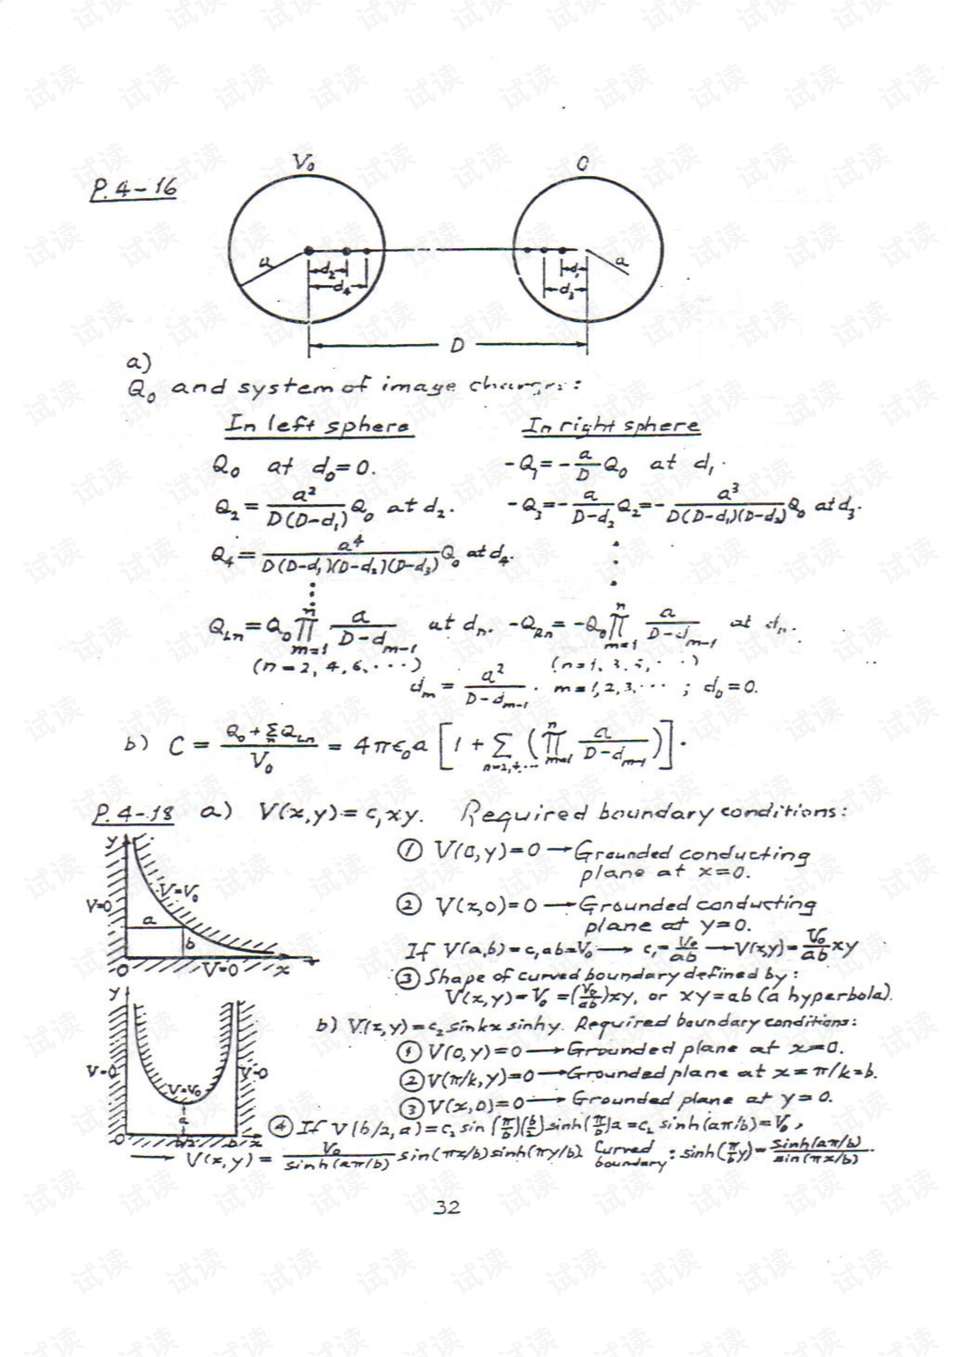 P. 4-16
V₀
0
a
d₂
d₄
a
d₁
d₃
D
a)
Q₀ and system of image charges:
In left sphere
In right sphere
Q₀ at d₀=0.
-Q₁=-a/D Q₀ at d₁.
Q₂ = a²/D(D-d₁) Q₀ at d₂.
-Q₃=-a/D-d₂ Q₂=-a³/D(D-d₁)(D-d₂) Q₀ at d₃.
Q₄ = a⁴/D(D-d₁)(D-d₂)(D-d₃) Q₀ at d₄.
Q_Ln = Q₀ ∏_{m=1}^{n} a/D-d_{m-1} at dₙ.
-Q_Rn = -Q₀ ∏_{m=1}^{n} a/D-d_{m-1} at dₙ.
(n=2, 4, 6, ···)
(n=1, 3, 5, ···)
d_m = a²/D-d_{m-1}. m=1,2,3,··· ; d₀=0.
b) C = Q₀+Σₙ Q_Ln / V₀ = 4πε₀a [1 + Σ_{n=2,4,···} (∏_{m=1}^{n} a/D-d_{m-1})].
P. 4-18 a) V(x,y)=c₁xy. Required boundary conditions:
① V(0,y)=0 → Grounded conducting
plane at x=0.
② V(x,0)=0 → Grounded conducting
plane at y=0.
If V(a,b)=c₁ab=V₀ → c₁=V₀/ab → V(x,y)=V₀/ab xy
③ Shape of curved boundary defined by:
V(x,y)=V₀=(V₀/ab)xy, or xy=ab (a hyperbola).
y
V=V₀
V=0
a
b
0
V=0
x
b) V(x,y)=c₂ sin kx sinh y. Required boundary conditions:
① V(0,y)=0 → Grounded plane at x=0.
② V(π/k,y)=0 → Grounded plane at x=π/k=b.
③ V(x,0)=0 → Grounded plane at y=0.
y
V=0
V=V₀
V=0
a
0
b/2
b
x
④ If V(b/2,a)=c₂ sin(π/b)(b/2) sinh(π/b)a=c₂ sinh(aπ/b)=V₀,
→ V(x,y)= V₀/sinh(aπ/b) sin(πx/b) sinh(πy/b). Curved boundary: sinh(π/b y)=sinh(aπ/b)/sin(πx/b).
32
试读